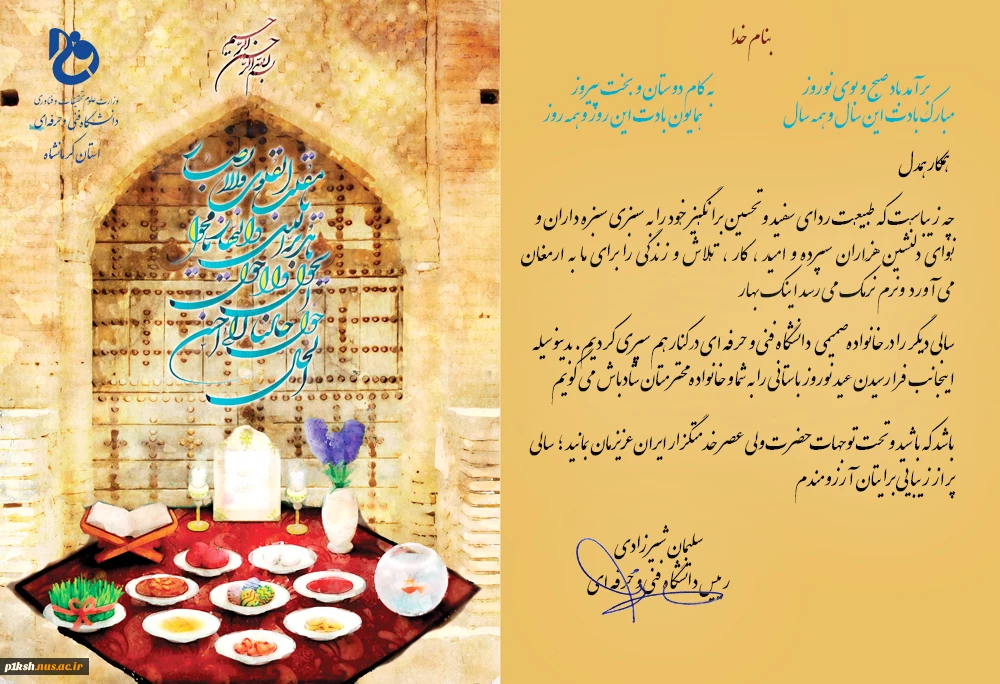 بسم الله الرحمن الرحیم
وزارت علوم تحقیقات و فناوری
دانشگاه فنی و حرفه ای
استان کرمانشاه
یا مقلب القلوب والابصار
یا مدبر اللیل والنهار
یا محول الحول والاحوال
حول حالنا الی احسن الحال
p1ksh.nus.ac.ir
بنام خدا
برآمد باد صبح و بوی نوروز به کام دوستان و بخت پیروز
مبارک بادت این سال و همه سال همایون بادت این روز و همه روز
همکار همدل
چه زیباست که طبیعت ردای سفید و تحسین برانگیز خود را به سبزی سبزه داران و
نوای دلنشین هزاران سپرده و امید ، کار ، تلاش و زندگی را برای ما به ارمغان
می آورد و نرم نرمک می رسد اینک بهار
سالی دیگر را در خانواده صمیمی دانشگاه فنی و حرفه ای در کنار هم سپری کردیم . بدینوسیله
اینجانب فرارسیدن عید نوروز باستانی را به شما و خانواده محترمتان شادباش می گویم
باشد که باشید و تحت توجهات حضرت ولی عصر خدمتگزار ایران عزیزمان بمانید ؛ سالی
پر از زیبایی برایتان آرزومندم
سلیمان شیرزادی
رییس دانشگاه فنی و حرفه ای